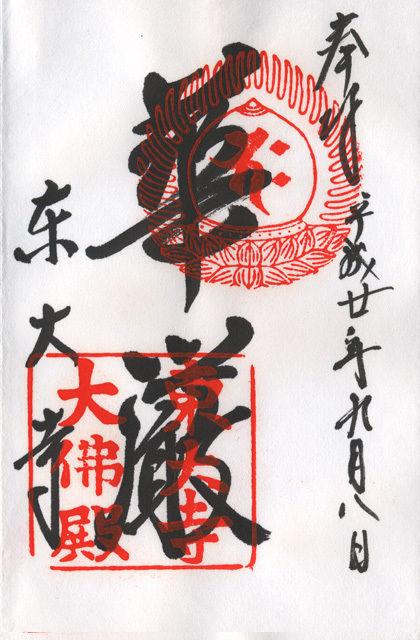 奉拝 平成廿年九月八日
華厳
东大寺
東大寺
大佛殿